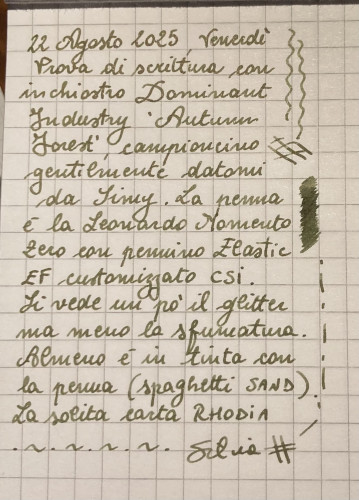 22 Agosto 2025, Venerdì
Prova di scrittura con
inchiostro Dominant
Industry "Autumn
Forest", campioncino
gentilmente datomi
da Simy. La penna
è la Leonardo Momento
Zero con pennino Elastic
EF customizzato CSI.
Si vede un pò il glitter
ma meno la sfumatura.
Almeno è in tinta con
la penna (spaghetti SAND).
La solita carta RHODIA
Silvia #